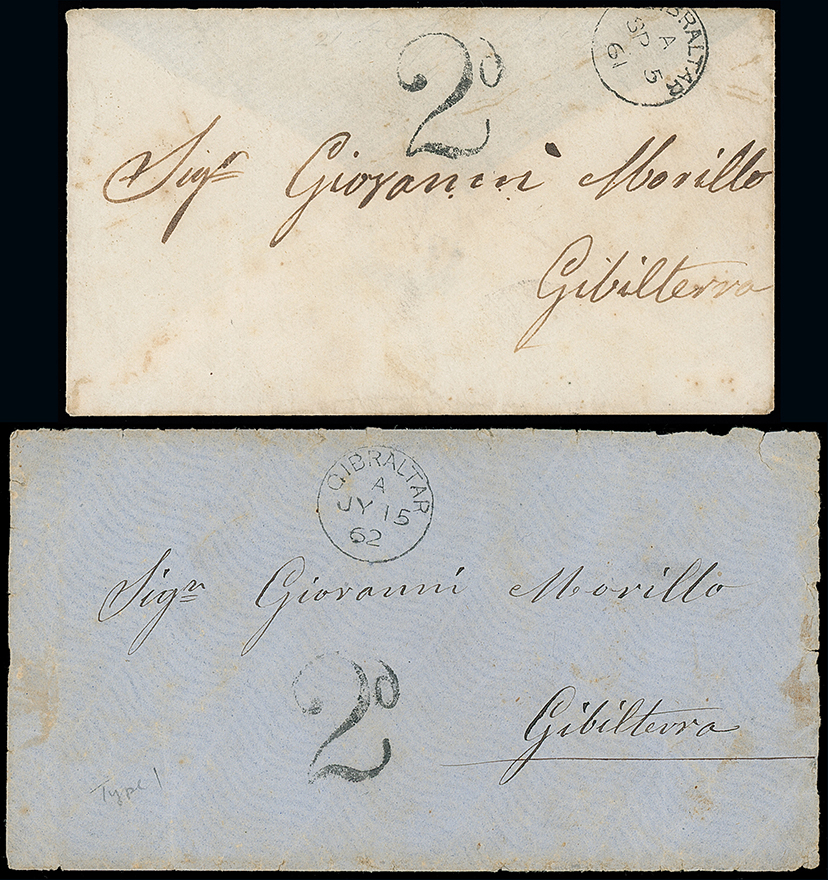 2d
GIBRALTAR
A
SP 5
61
Sigr Giovanni Morillo
Gibilterra
GIBRALTAR
A
JY 15
62
Sign Giovanni Morillo
2d
Gibilterra
Type 1